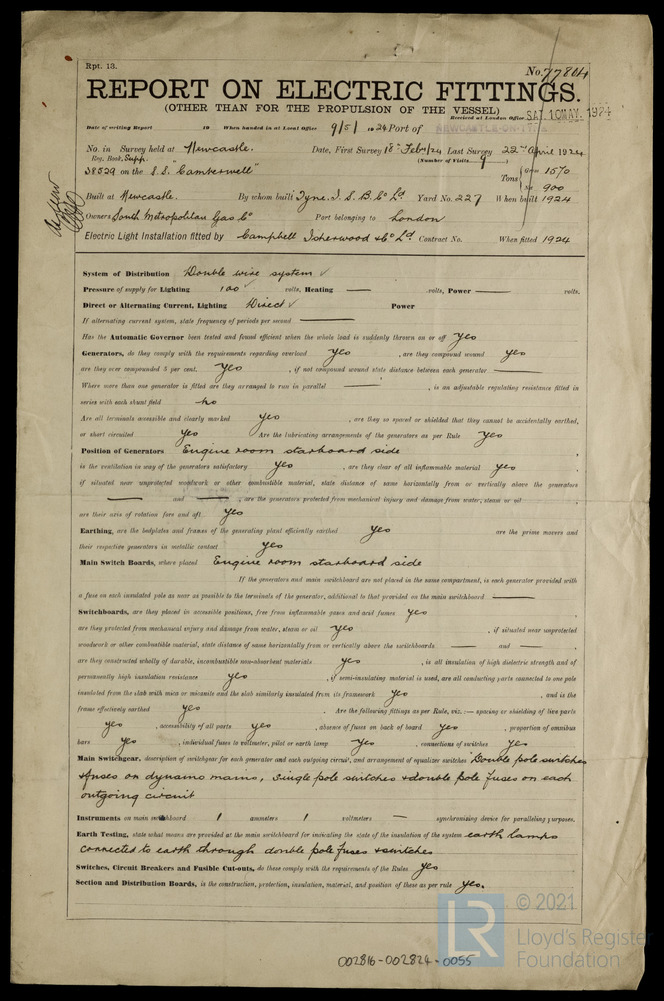 Rpt. 13.
No. 77804
REPORT ON ELECTRIC FITTINGS.
(OTHER THAN FOR THE PROPULSION OF THE VESSEL)
Received at London Office SAT. 10 MAY. 1924
Date of writing Report 19 When handed in at Local Office 9/5/ 1924 Port of NEWCASTLE-ON-TYNE
No. in Survey held at Newcastle. Date, First Survey 18th Feb/24 Last Survey 22nd April 1924
Reg. Book. Supp. (Number of Visits 9)
38529 on the S.S. "Camberwell" Tons Gross 1570
Net 900
Built at Newcastle. By whom built Tyne I. S. B. Co Ld Yard No. 227 When built 1924
Owners South Metropolitan Gas Co Port belonging to London
Electric Light Installation fitted by Campbell Isherwood & Co Ld Contract No. When fitted 1924
System of Distribution Double wire system ✓
Pressure of supply for Lighting 100 ✓ volts, Heating — volts, Power — volts.
Direct or Alternating Current, Lighting Direct ✓ Power
If alternating current system, state frequency of periods per second —
Has the Automatic Governor been tested and found efficient when the whole load is suddenly thrown on or off Yes
Generators, do they comply with the requirements regarding overload Yes , are they compound wound Yes
are they over compounded 5 per cent. Yes , if not compound wound state distance between each generator —
Where more than one generator is fitted are they arranged to run in parallel — , is an adjustable regulating resistance fitted in
series with each shunt field No
Are all terminals accessible and clearly marked Yes , are they so spaced or shielded that they cannot be accidentally earthed,
or short circuited Yes Are the lubricating arrangements of the generators as per Rule Yes
Position of Generators Engine room starboard side
is the ventilation in way of the generators satisfactory Yes , are they clear of all inflammable material Yes
if situated near unprotected woodwork or other combustible material, state distance of same horizontally from or vertically above the generators
— and — , are the generators protected from mechanical injury and damage from water, steam or oil
are their axis of rotation fore and aft Yes
Earthing, are the bedplates and frames of the generating plant efficiently earthed Yes are the prime movers and
their respective generators in metallic contact Yes
Main Switch Boards, where placed Engine room starboard side
If the generators and main switchboard are not placed in the same compartment, is each generator provided with
a fuse on each insulated pole as near as possible to the terminals of the generator, additional to that provided on the main switchboard —
Switchboards, are they placed in accessible positions, free from inflammable gases and acid fumes Yes
are they protected from mechanical injury and damage from water, steam or oil Yes , if situated near unprotected
woodwork or other combustible material, state distance of same horizontally from or vertically above the switchboards — and —
are they constructed wholly of durable, incombustible non-absorbent materials Yes , is all insulation of high dielectric strength and of
permanently high insulation resistance Yes , if semi-insulating material is used, are all conducting parts connected to one pole
insulated from the slab with mica or micanite and the slab similarly insulated from its framework Yes , and is the
frame effectively earthed Yes . Are the following fittings as per Rule, viz.:— spacing or shielding of live parts
Yes , accessibility of all parts Yes , absence of fuses on back of board Yes , proportion of omnibus
bars Yes , individual fuses to voltmeter, pilot or earth lamp Yes , connections of switches Yes
Main Switchgear, description of switchgear for each generator and each outgoing circuit, and arrangement of equalizer switches Double pole switches
& fuses on dynamo mains, single pole switches & double pole fuses on each
outgoing circuit
Instruments on main switchboard 1 ammeters 1 voltmeters — synchronizing device for paralleling purposes.
Earth Testing, state what means are provided at the main switchboard for indicating the state of the insulation of the system earth lamps
connected to earth through double pole fuses & switches
Switches, Circuit Breakers and Fusible Cut-outs, do these comply with the requirements of the Rules Yes
Section and Distribution Boards, is the construction, protection, insulation, material, and position of these as per rule Yes.
LR
© 2021
Lloyd's Register
Foundation
002816-002824-0055